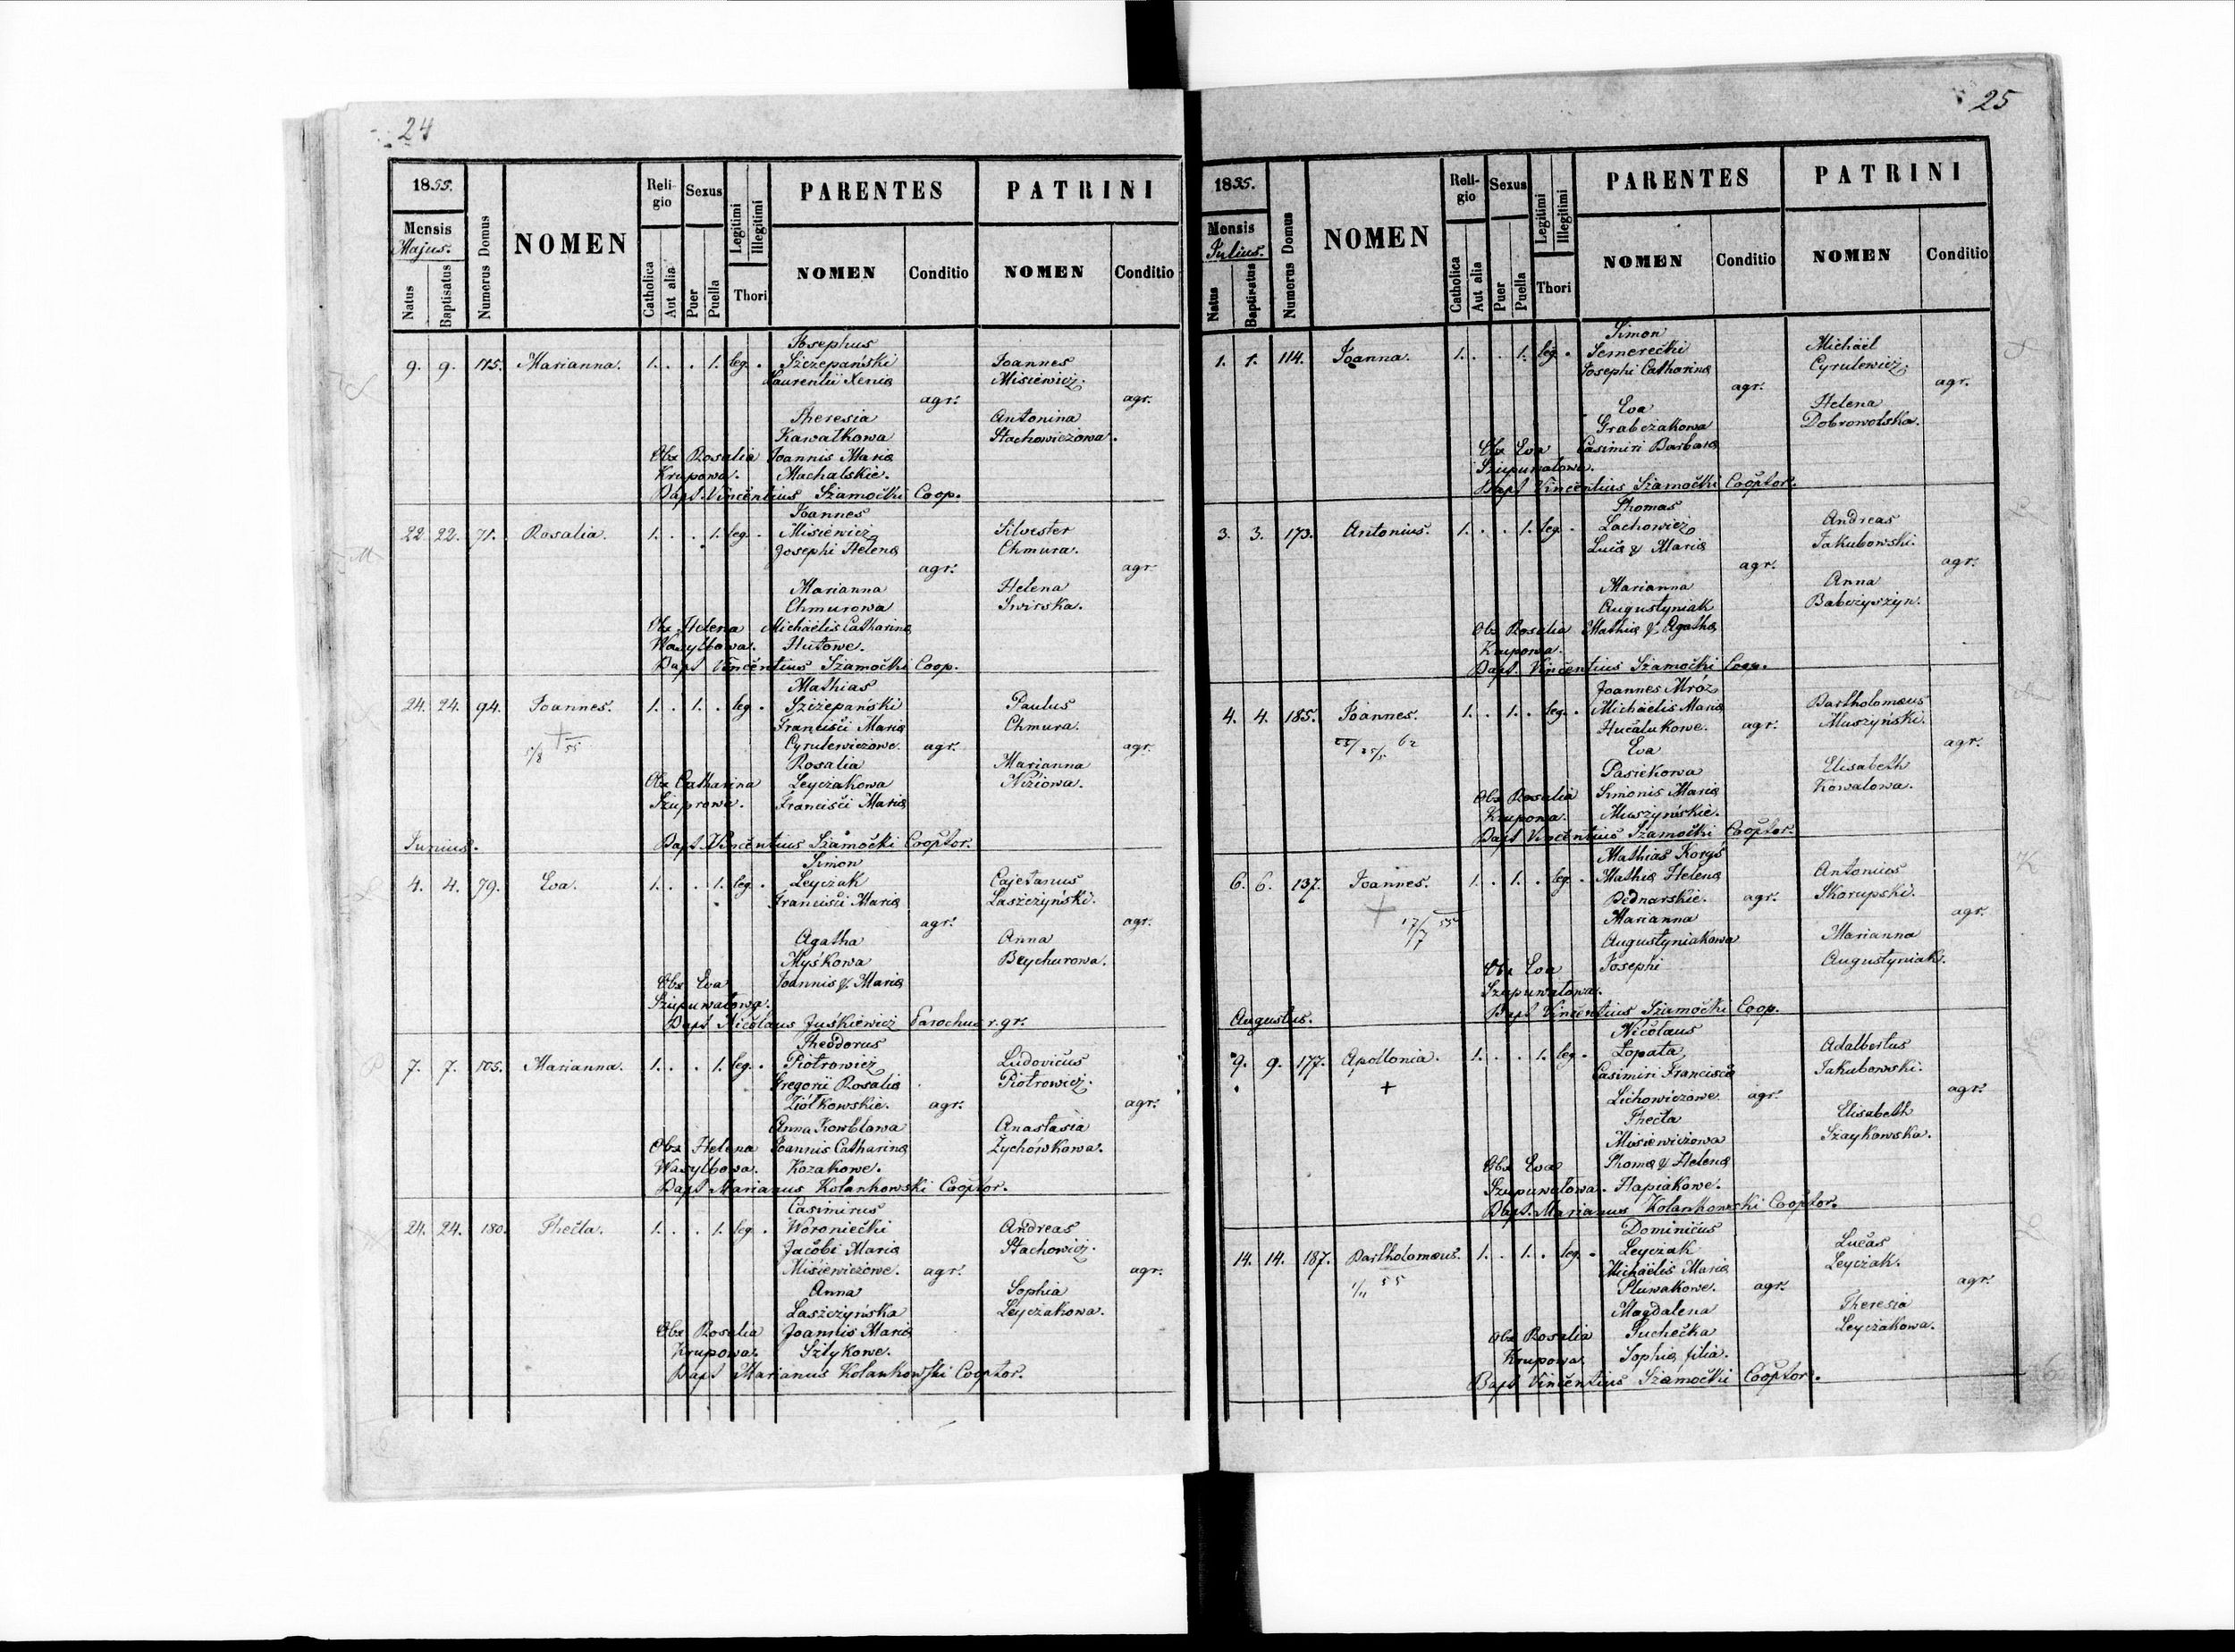 24
1855.
Mensis
Majus.
Natus
Baptisatus
Numerus Domus
NOMEN
Reli-
gio
Catholica
Aut alia
Sexus
Puer
Puella
Legitimi
Illegitimi
Thori
PARENTES
NOMEN
Conditio
PATRINI
NOMEN
Conditio
Josephus
9. 9. 115. Marianna. 1. . . 1. leg. . Szczepański Joannes
Laurentii Xenia Misiewicz.
agr. agr.
Theresia Antonina
Kawałkowa Stachowiczowa.
Obx Rosalia Joannis Mariæ
Krupowa. Machalskie.
Bapt. Vincentius Szamocki Coop.
Joannes
22. 22. 71. Rosalia. 1. . . 1. leg. . Misiewicz Silvester
Josephi Helenæ Chmura.
agr. agr.
Marianna Helena
Chmurowa Swirska.
Obx Helena Michaelis Catharinæ
Wasylbowa. Hutowe.
Bapt Vincentius Szamocki Coop.
Mathias
24. 24. 94. Joannes. 1. . 1. . leg. . Szczepański Paulus
Francisci Mariæ Chmura.
5/8 + 55 Cyrulewiczowe. agr. agr.
Rosalia Marianna
Obx Catharina Leyczakowa Niziowa.
Szuprowa. Francisci Mariæ
Junius. Bapt. Vincentius Szamocki Cooptor.
Simon
4. 4. 79. Eva. 1. . . 1. leg. . Leyczak Cajetanus
Francisci Mariæ Laszczyński.
agr. agr.
Agatha Anna
Myśkowa Brychurowa.
Obx Eva Joannis & Mariæ
Szupuwałowa.
Bapt Nicolaus Juśkiewicz Parochus r. gr.
Theodorus
7. 7. 105. Marianna. 1. . . 1. leg. . Piotrowicz Ludovicus
Gregorii Rosaliæ Piotrowicz.
Ziółkowskie. agr. agr.
Anna Kowblowa Anastasia
Obx Helena Joannis Catharinæ Żychówkowa.
Wasylbowa. Kozakowe.
Bapt Marianus Kolankowski Cooptor.
Casimirus
24. 24. 180. Thecla. 1. . . 1. leg. . Woroniecki Andreas
Jacobi Mariæ Stachowicz.
Misiewiczowe. agr. agr.
Anna Sophia
Laszczyńska Leyczakowa.
Obx Rosalia Joannis Mariæ
Krupowa. Szlykowe.
Bapt Marianus Kolankowski Cooptor.
25
1855.
Mensis
Julius.
Natus
Baptisatus
Numerus Domus
NOMEN
Reli-
gio
Catholica
Aut alia
Sexus
Puer
Puella
Legitimi
Illegitimi
Thori
PARENTES
NOMEN
Conditio
PATRINI
NOMEN
Conditio
Simon
1. 1. 114. Joanna. 1. . . 1. leg. . Semerecki Michaël
Josephi Catharinæ Cyrulewicz.
agr. agr.
Eva Helena
Grabczakowa Dobrowolska.
Obx Eva Casimiri Barbaræ
Szupuwałowa.
Bapt Vincentius Szamocki Cooptor.
Thomas
3. 3. 173. Antonius. 1. . . 1. leg. . Lachowicz Andreas
Lucæ & Mariæ Jakubowski.
agr. agr.
Marianna Anna
Augustyniak Babczyszyn.
Obx Rosalia Mathiæ & Agathæ
Krupowa.
Bapt. Vincentius Szamocki Coop.
Joannes Mróz
4. 4. 185. Joannes. 1. . 1. . leg. . Michaelis Mariæ Bartholomæus
Hucałukowe. agr. Muszyński.
62 Eva agr.
Pasiekowa Elisabeth
Obx Rosalia Simonis Mariæ Kowalowa.
Krupowa. Muszyńskie.
Bapt Vincentius Szamocki Cooptor.
Mathias Koryś
6. 6. 137. Joannes. 1. . 1. . leg. . Mathiæ Helenæ Antonius
+ Bednarskie. agr. Skorupski.
17/7 55 Marianna agr.
Augustyniakowa Marianna
Obx Eva Josephi Augustyniak.
Szupuwałowa.
Augustus. Bapt Vincentius Szamocki Coop.
Nicolaus
9. 9. 177. Apollonia. 1. . . 1. leg. . Łopata Adalbertus
Casimiri Franciscæ Jakubowski.
+ Lichowiczowe agr. agr.
Thecla Elisabeth
Misiewiczowa Szaykowska.
Obx Eva Thomæ & Helenæ
Szupuwałowa. Hapiakowe.
Bapt. Marianus Kolankowski Cooptor.
Dominicus
14. 14. 187. Bartholomæus. 1. . 1. . leg. . Leyczak Lucas
Michaëlis Mariæ Leyczak.
1/11 55 Pluwakowe. agr. agr.
Magdalena Theresia
Obx Rosalia Suchecka Leyczakowa.
Krupowa. Sophiæ filia.
Bapt Vincentius Szamocki Cooptor.